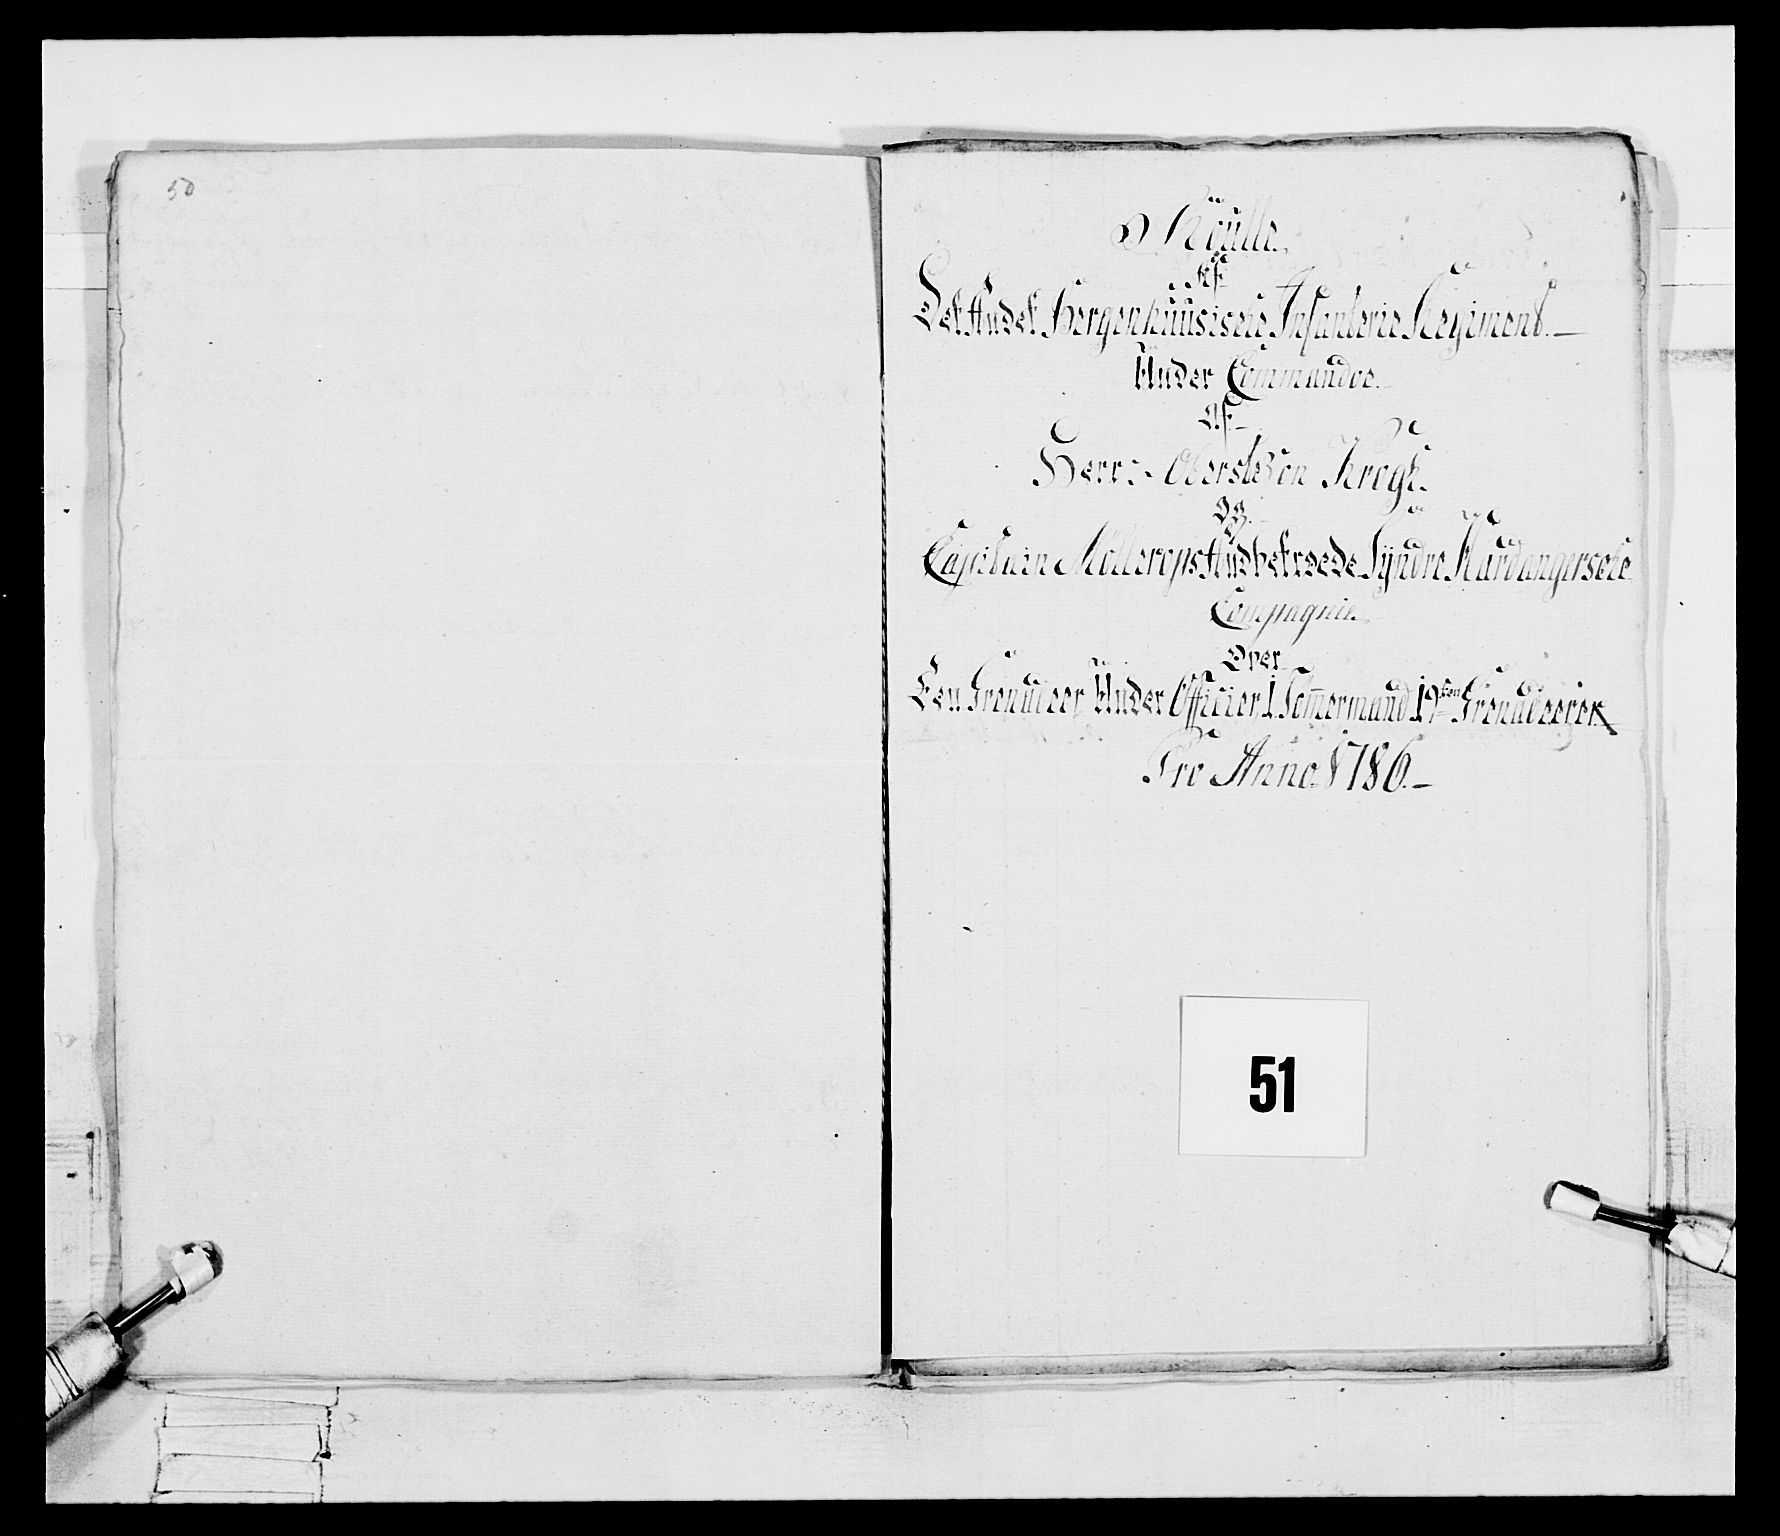 50
Roulla
Af
Det Andet Bergenhuusische Infanterie Regiment.
Under Commandoe.
Af
Herr:- Oberste von Krogh.
Og
Capitain Möllerops Andbetroede Syndre Hardangersche
Compagnie.
Over
Een Grenadeer Under Officier 1 Tömermand 19ten Grenadeerer
Pro Anno 1786.
51